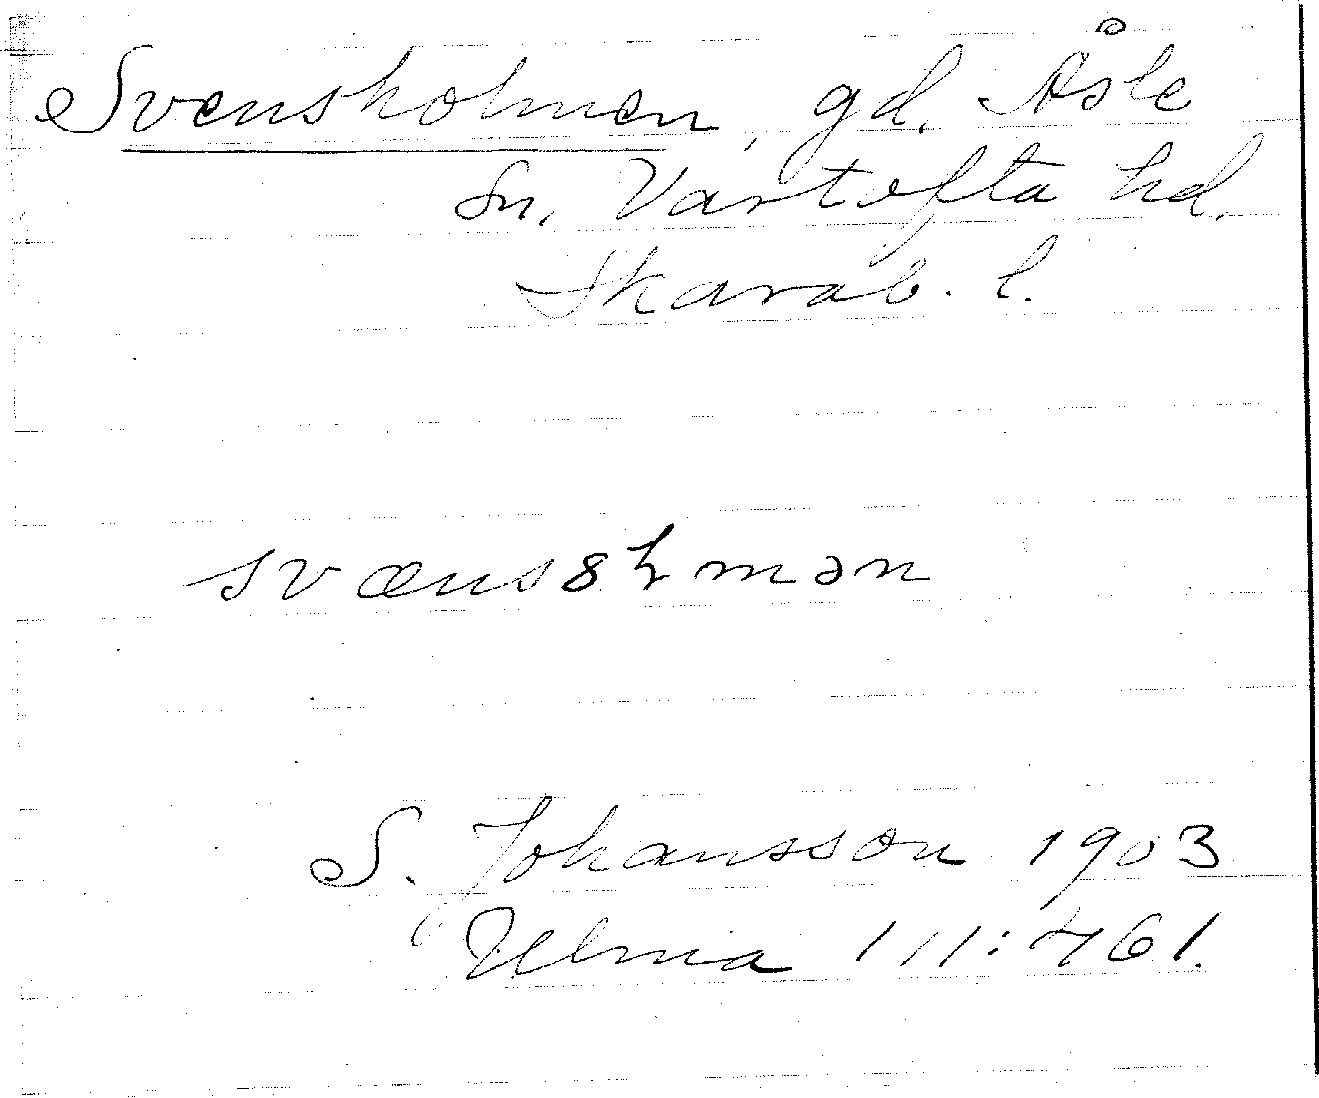 Svensholmen, gd. Åsle
Sn, Vartofta hd.
Skarab. l.
S. Johansson 1903
Ulma 111:461.